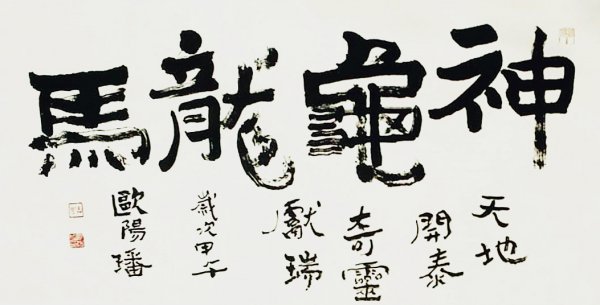 神龜龍馬
天地
開泰
奇靈
獻瑞
歲次甲午
歐陽璠